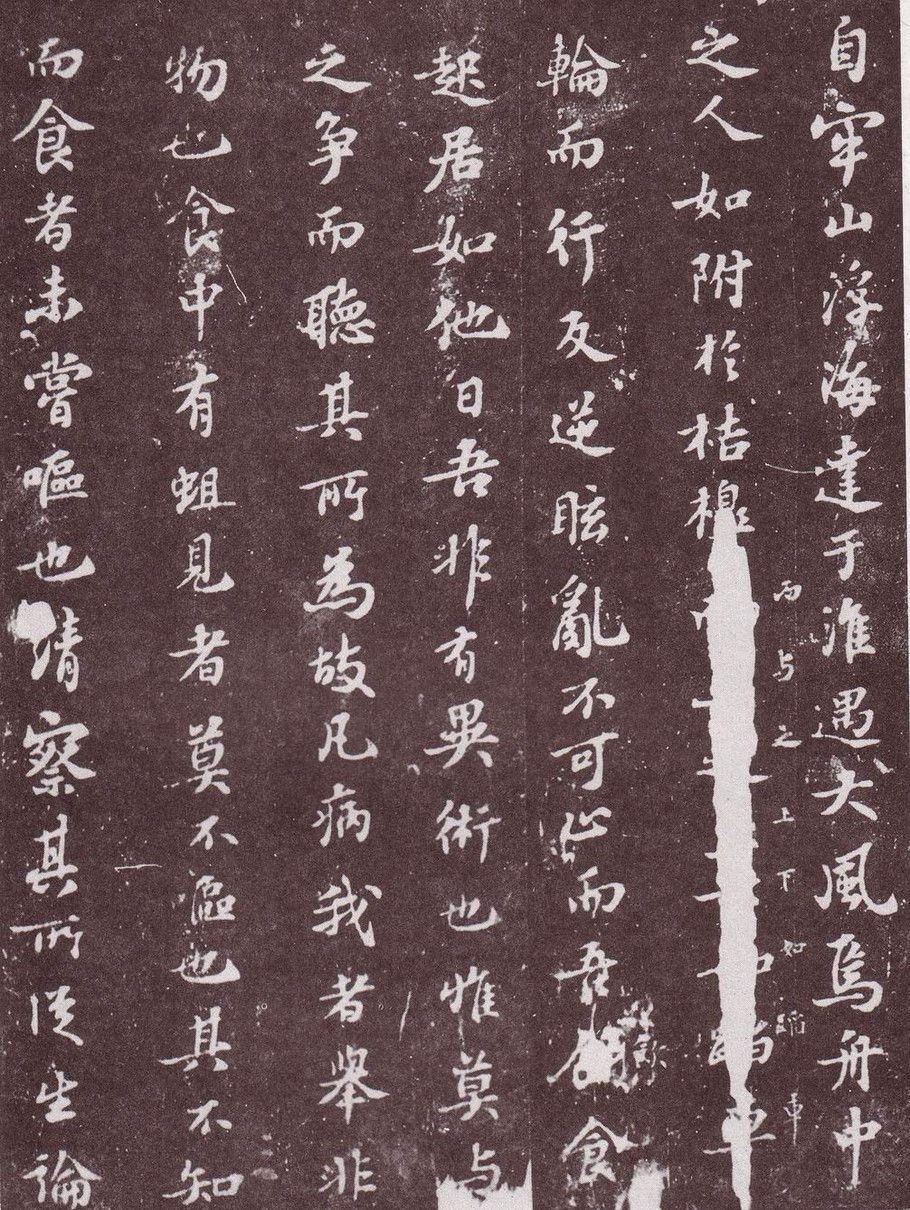 自牢山浮海達于淮遇大風焉舟中
之人如附於枯槔而与之上下如蹈車
而与之上下如蹈車
輪而行反逆眩亂不可止而吾飲食
起居如他日吾非有異術也惟莫与
之争而聽其所為故凡病我者舉非
物也食中有蛆見者莫不嘔也其不知
而食者未嘗嘔也請察其所從生論